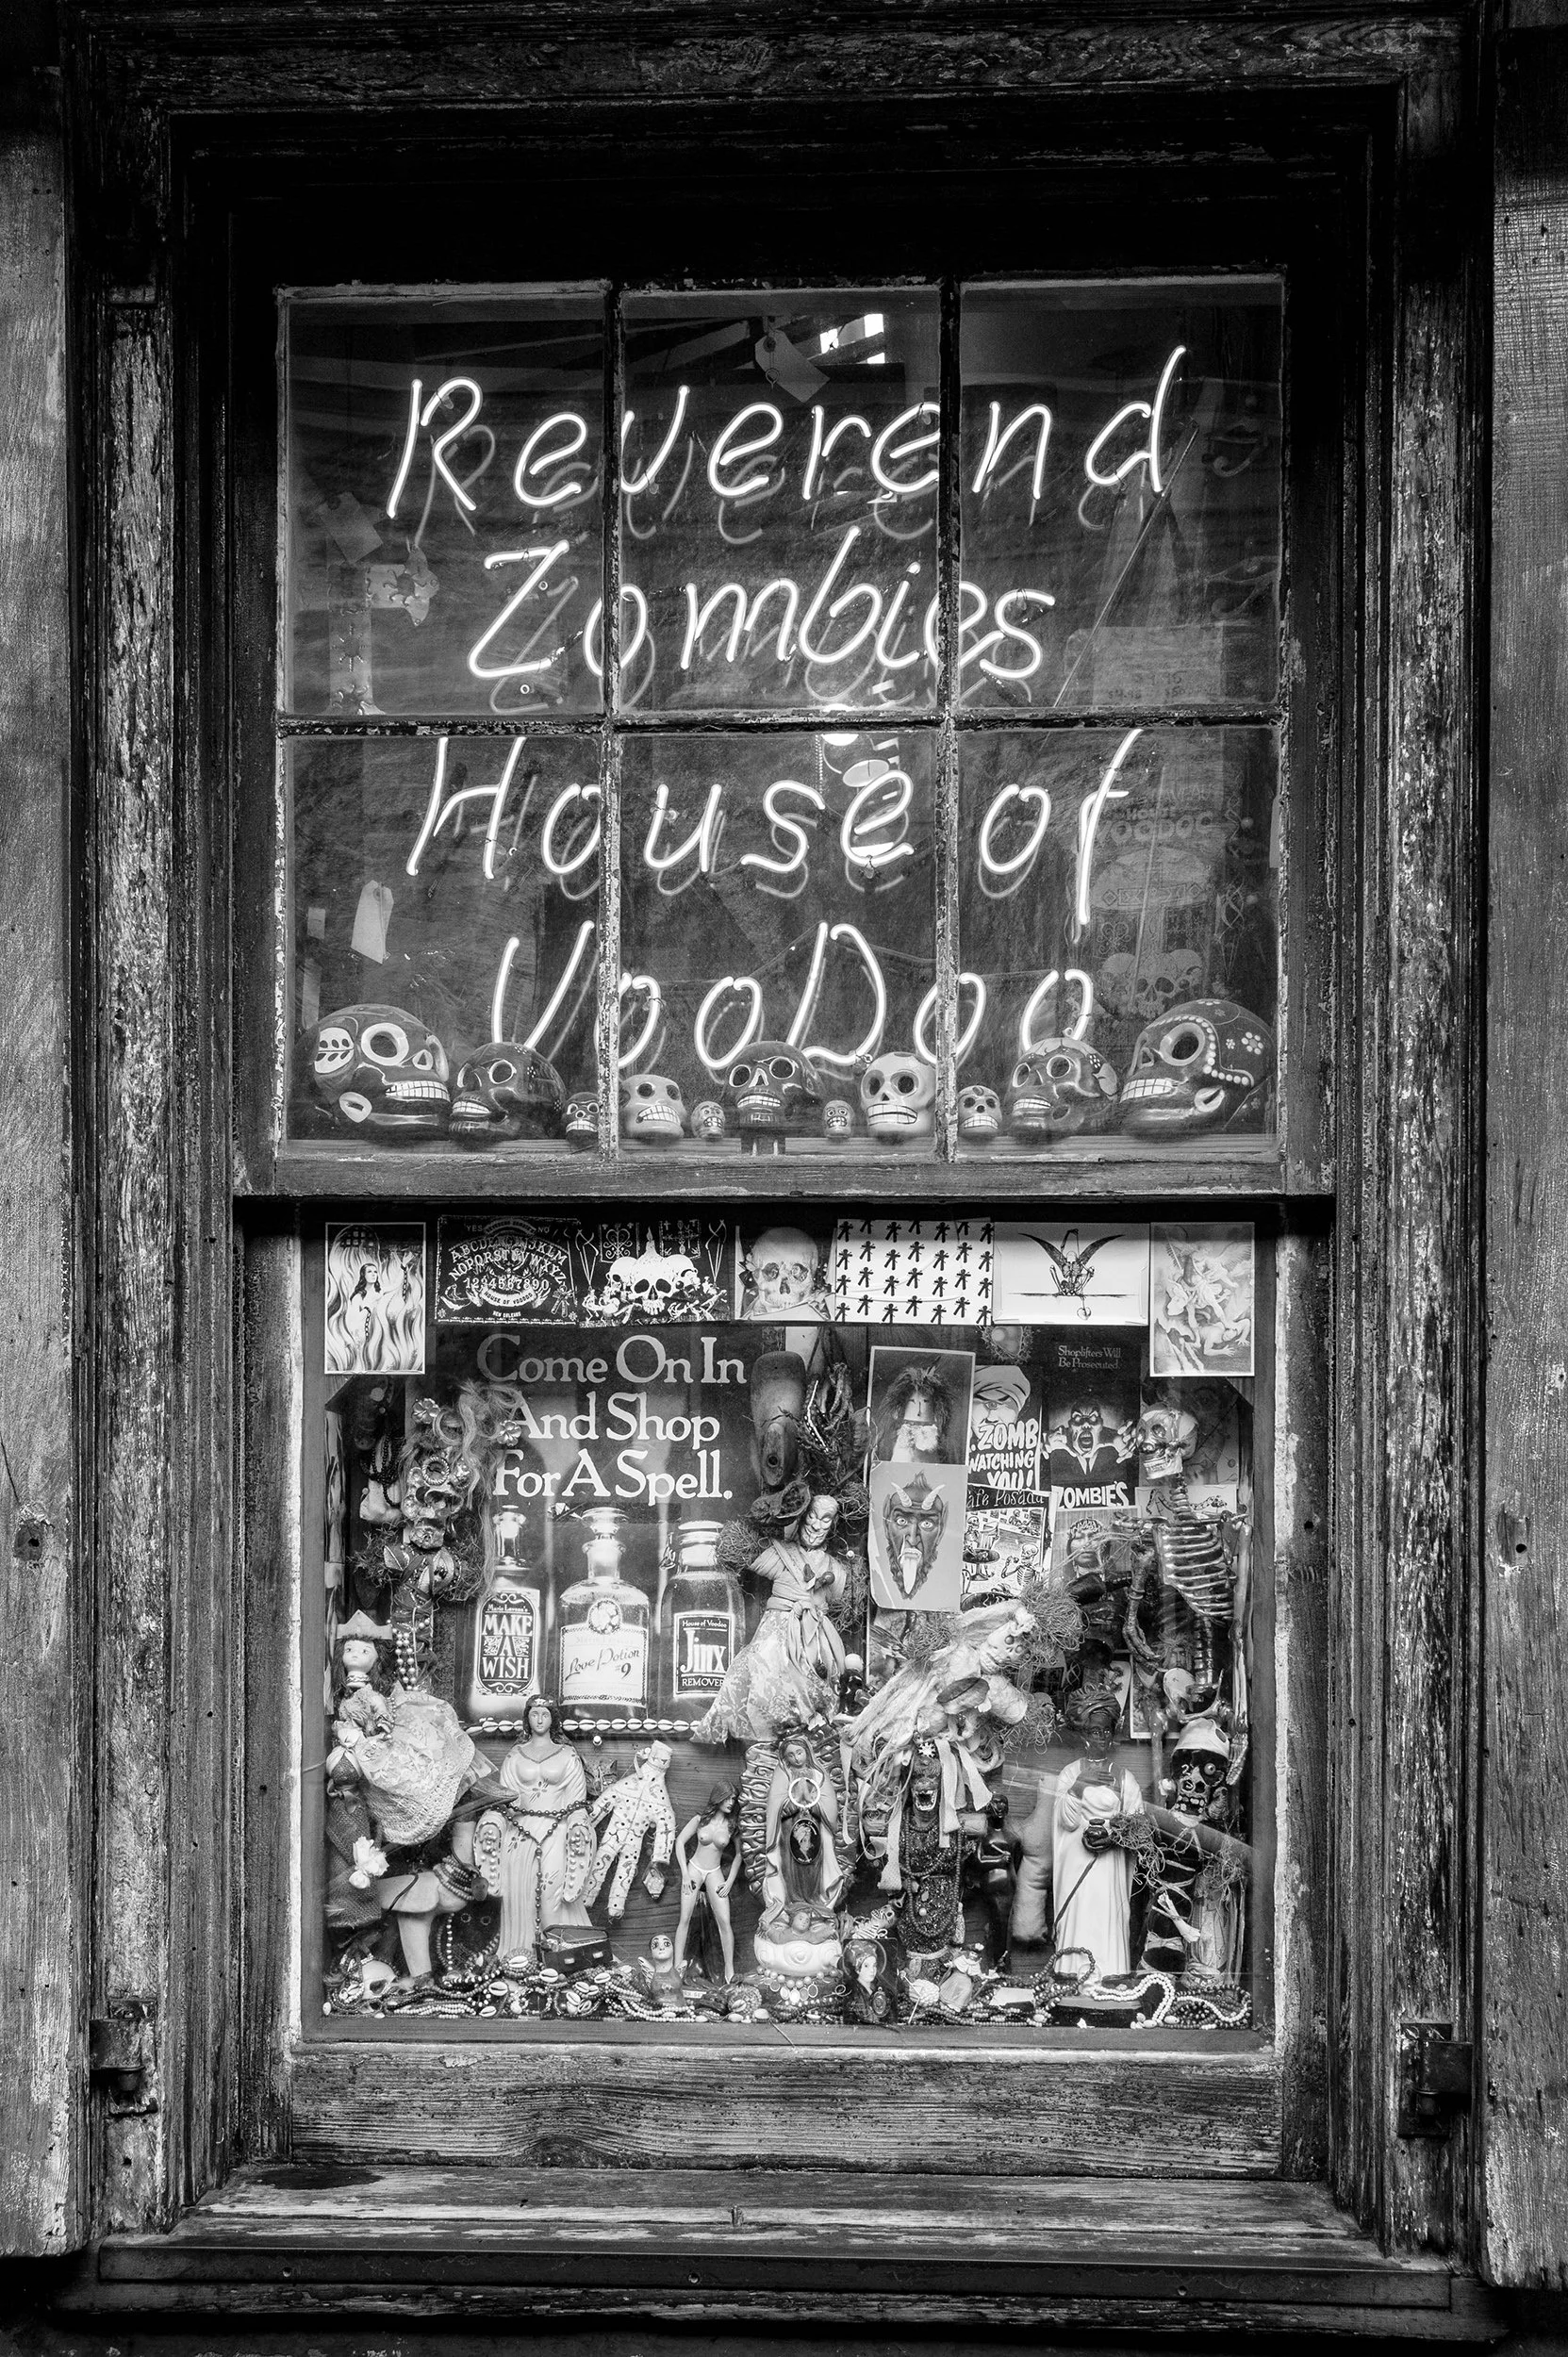 Reverend
Zombies
House of
VooDoo
YES
NO
ABCDEFGHIJKLM
NOPQRSTUVWXYZ
1234567890
HOUSE OF VOODOO
NEW ORLEANS
Come On In
And Shop
For A Spell.
Shoplifters Will
Be Prosecuted
ZOMB
WATCHING
YOU!
ZOMBIES
MAKE
A
WISH
Love Potion
#9
House of Voodoo
Jinx
REMOVER